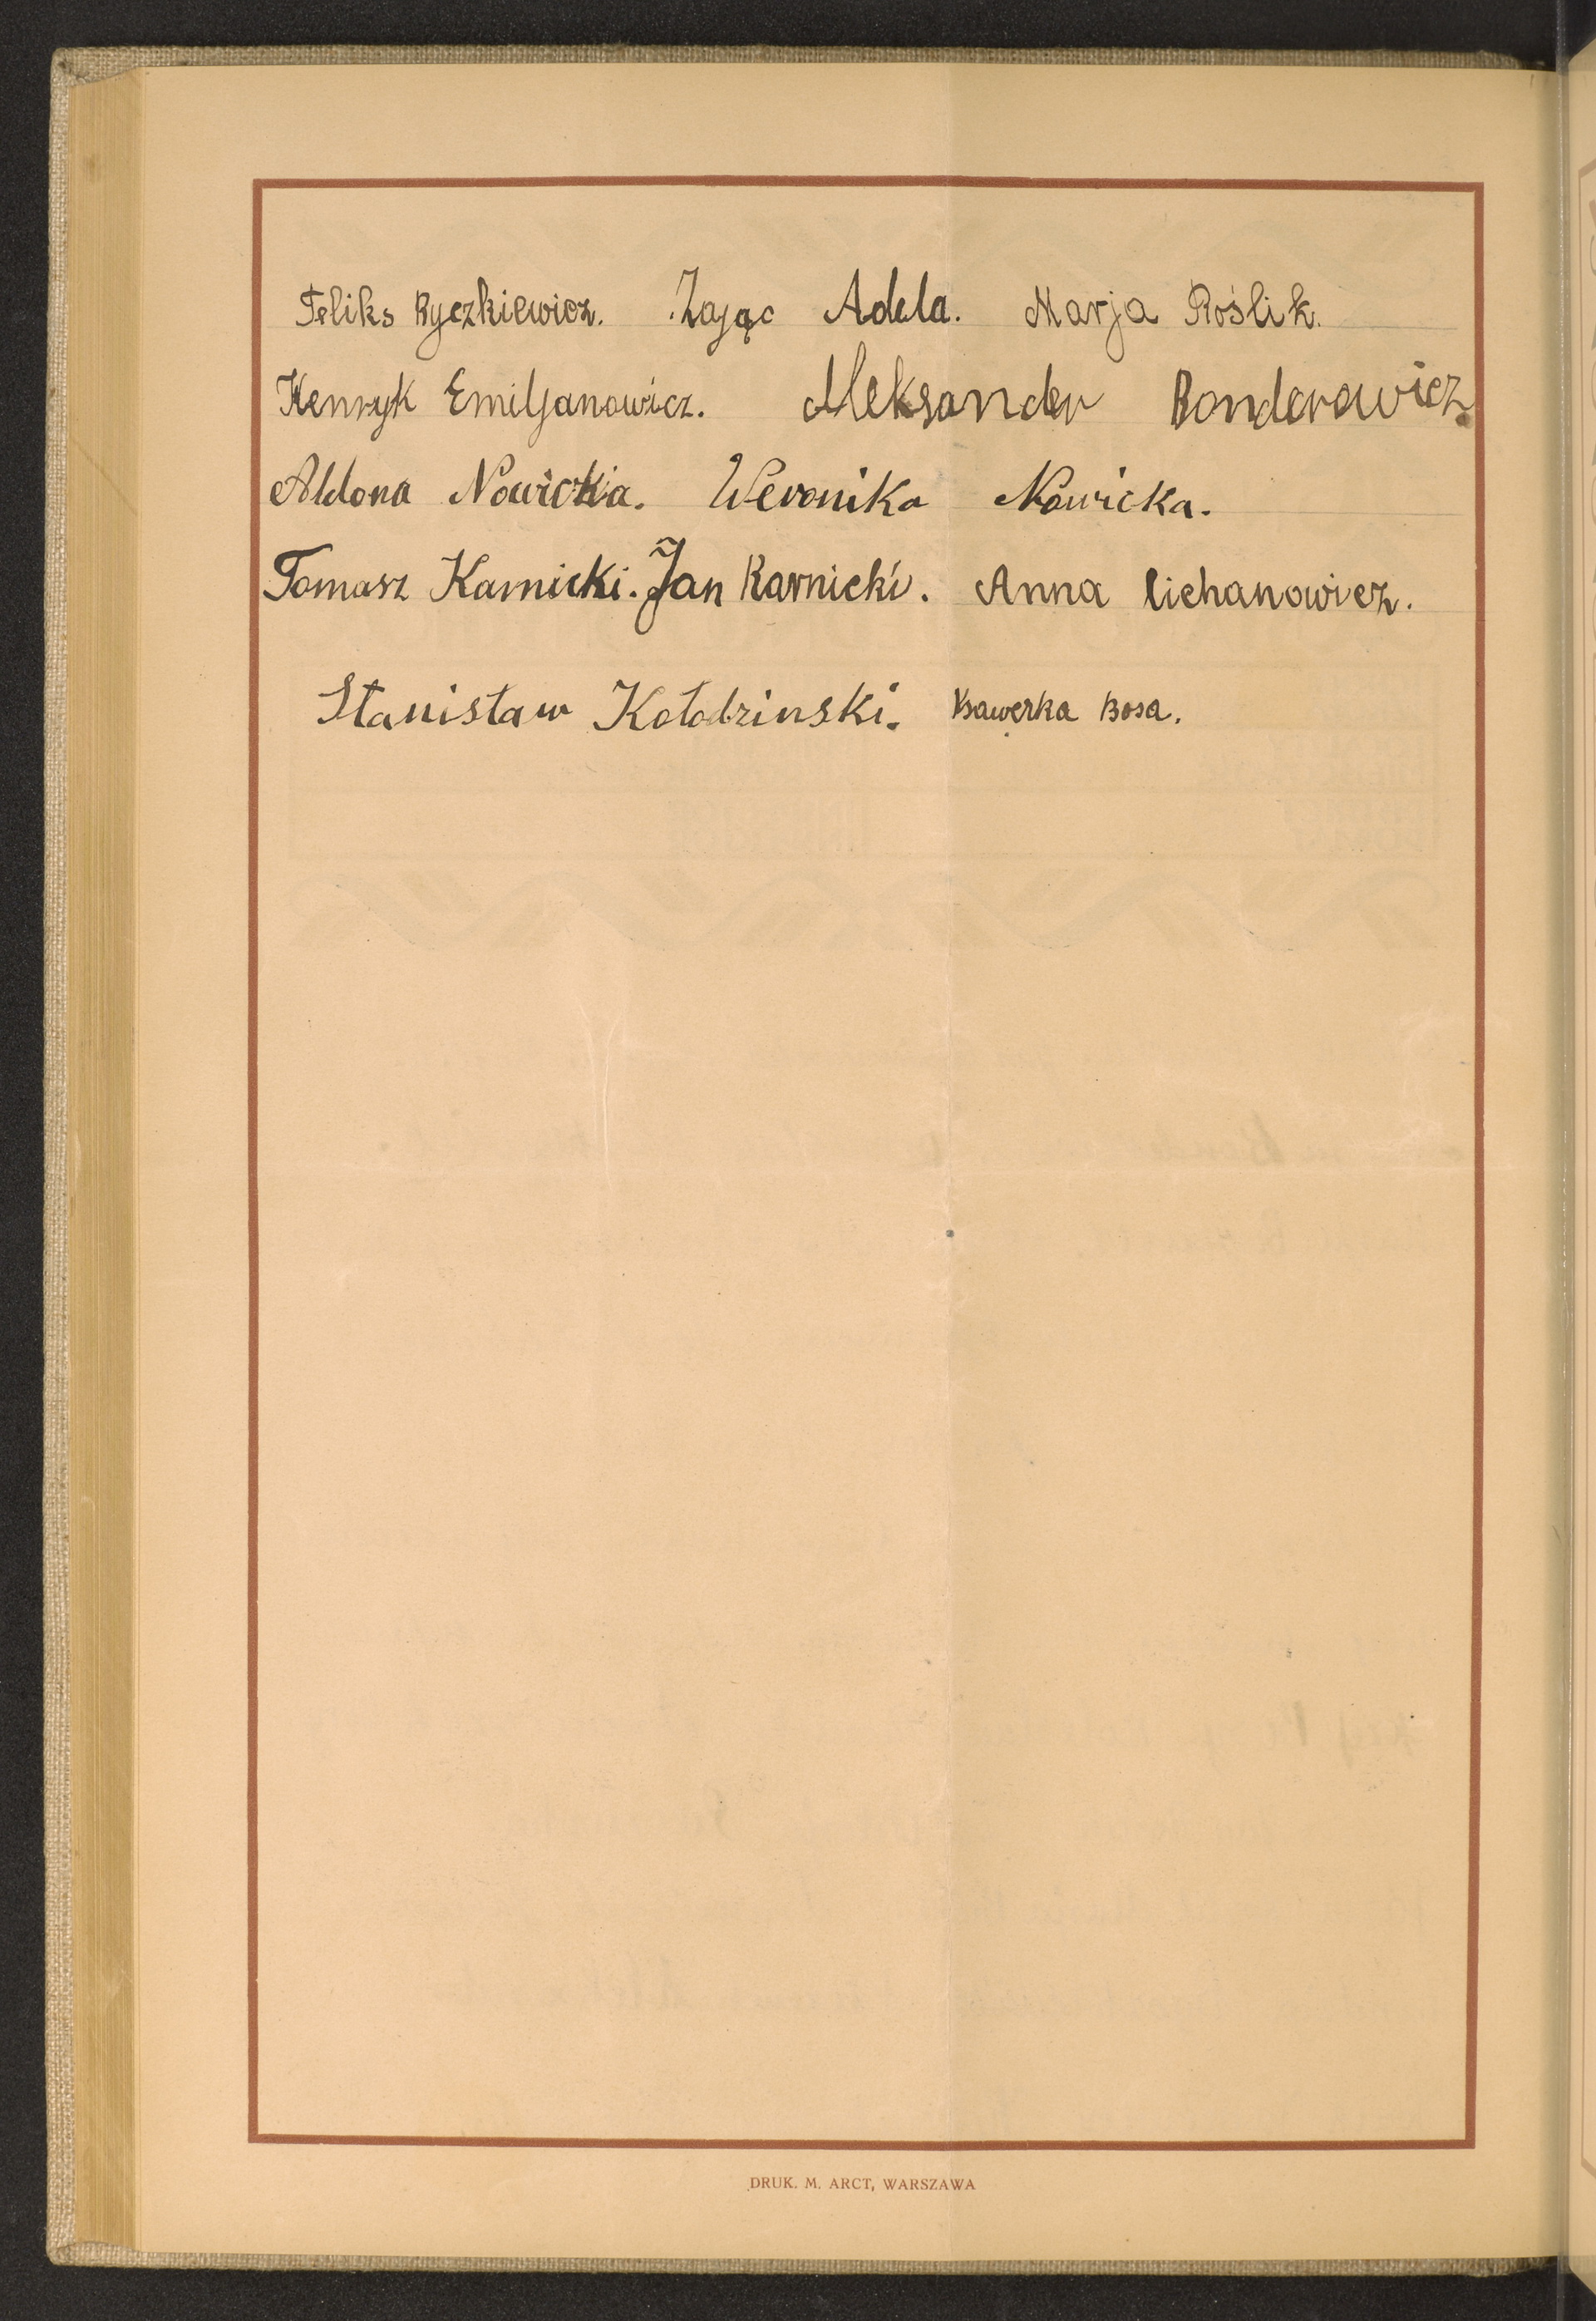 Feliks Ryczkiewicz. Zając Adela. Marja Roślik.
Henryk Emiljanowicz. Aleksander Bonderowicz
Aldona Nowicka. Weronika Nowicka.
Tomasz Karnicki. Jan Karnicki. Anna Cichanowicz.
Stanisław Kołodzinski. Ksawerka Bosa.
DRUK. M. ARCT, WARSZAWA